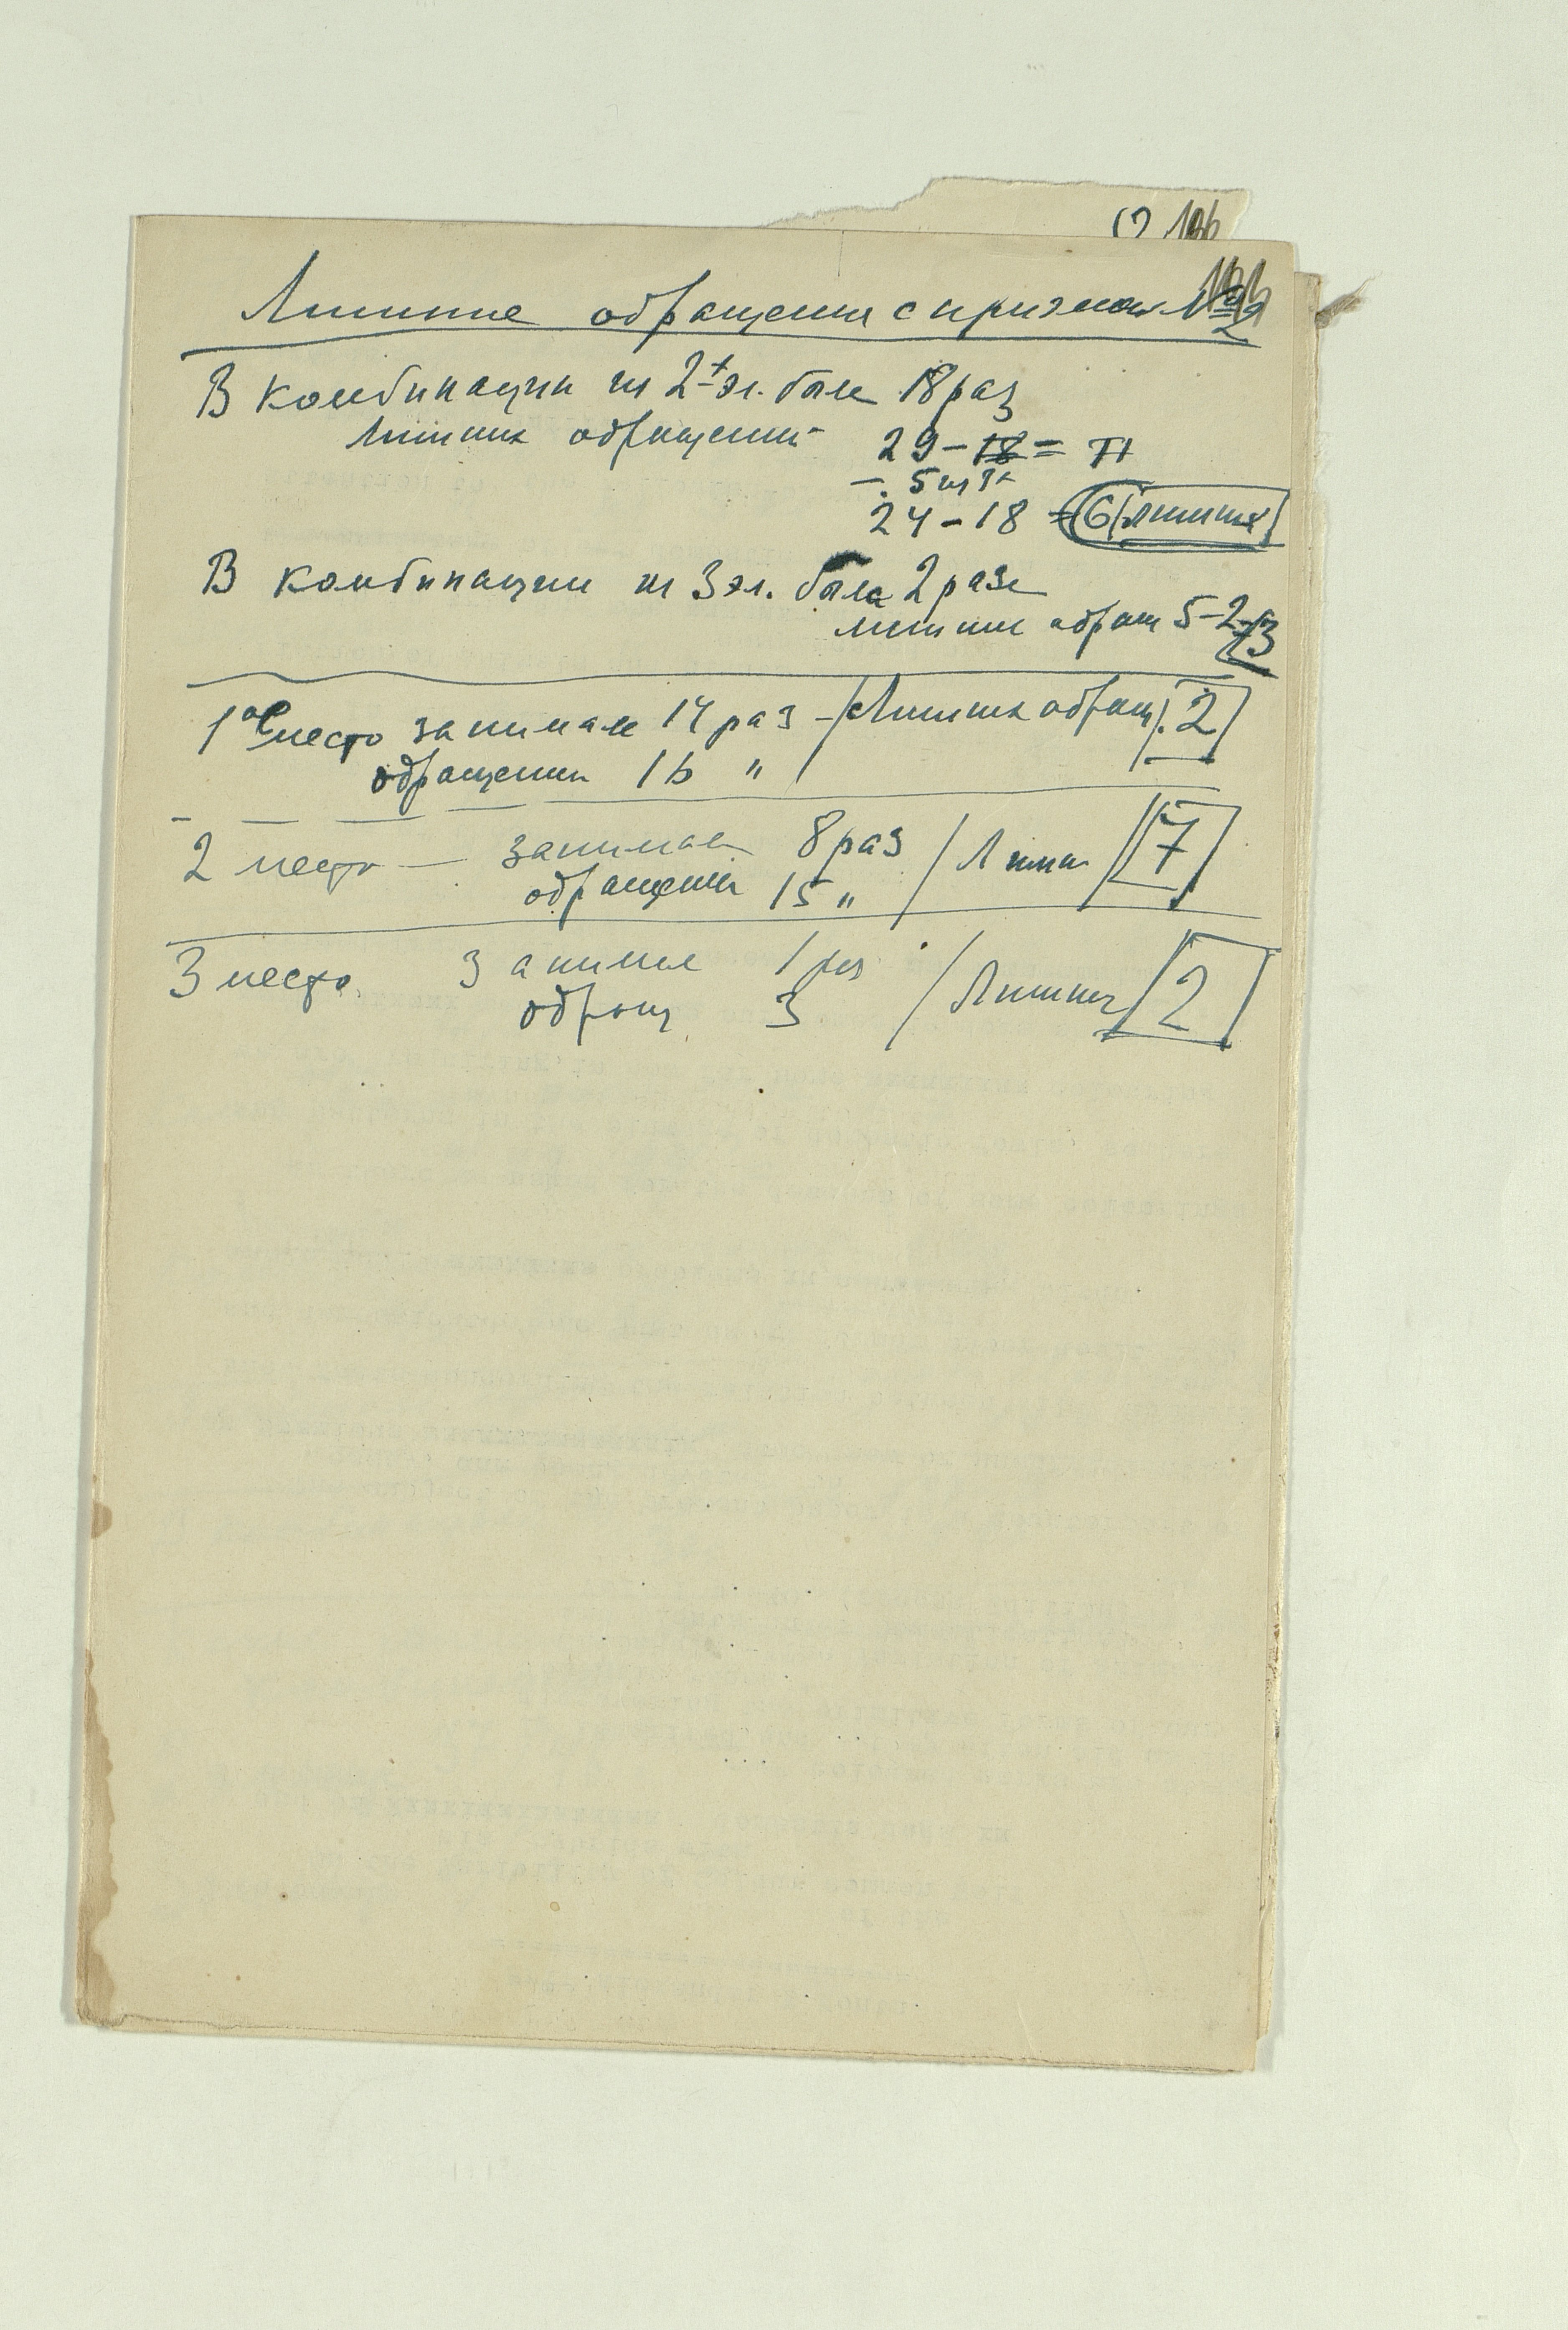 Лишние обращения с признак. № 2
В комбинации из 2х эл. были 18 раз
лишних обращений 29 – 18 = 11
– 5 из 3х
24 – 18 = 6 лишних
В комбинации из 3 эл. была 2 раза
лишние обращ 5–2=3
1ое место занимале 14 раз – Лишних обращ. 2
обращений 16 "
2 место — занимал 8 раз Лишн 7
обращений 15 "
3 место занимал 1 раз Лишних 2
обращ. 3